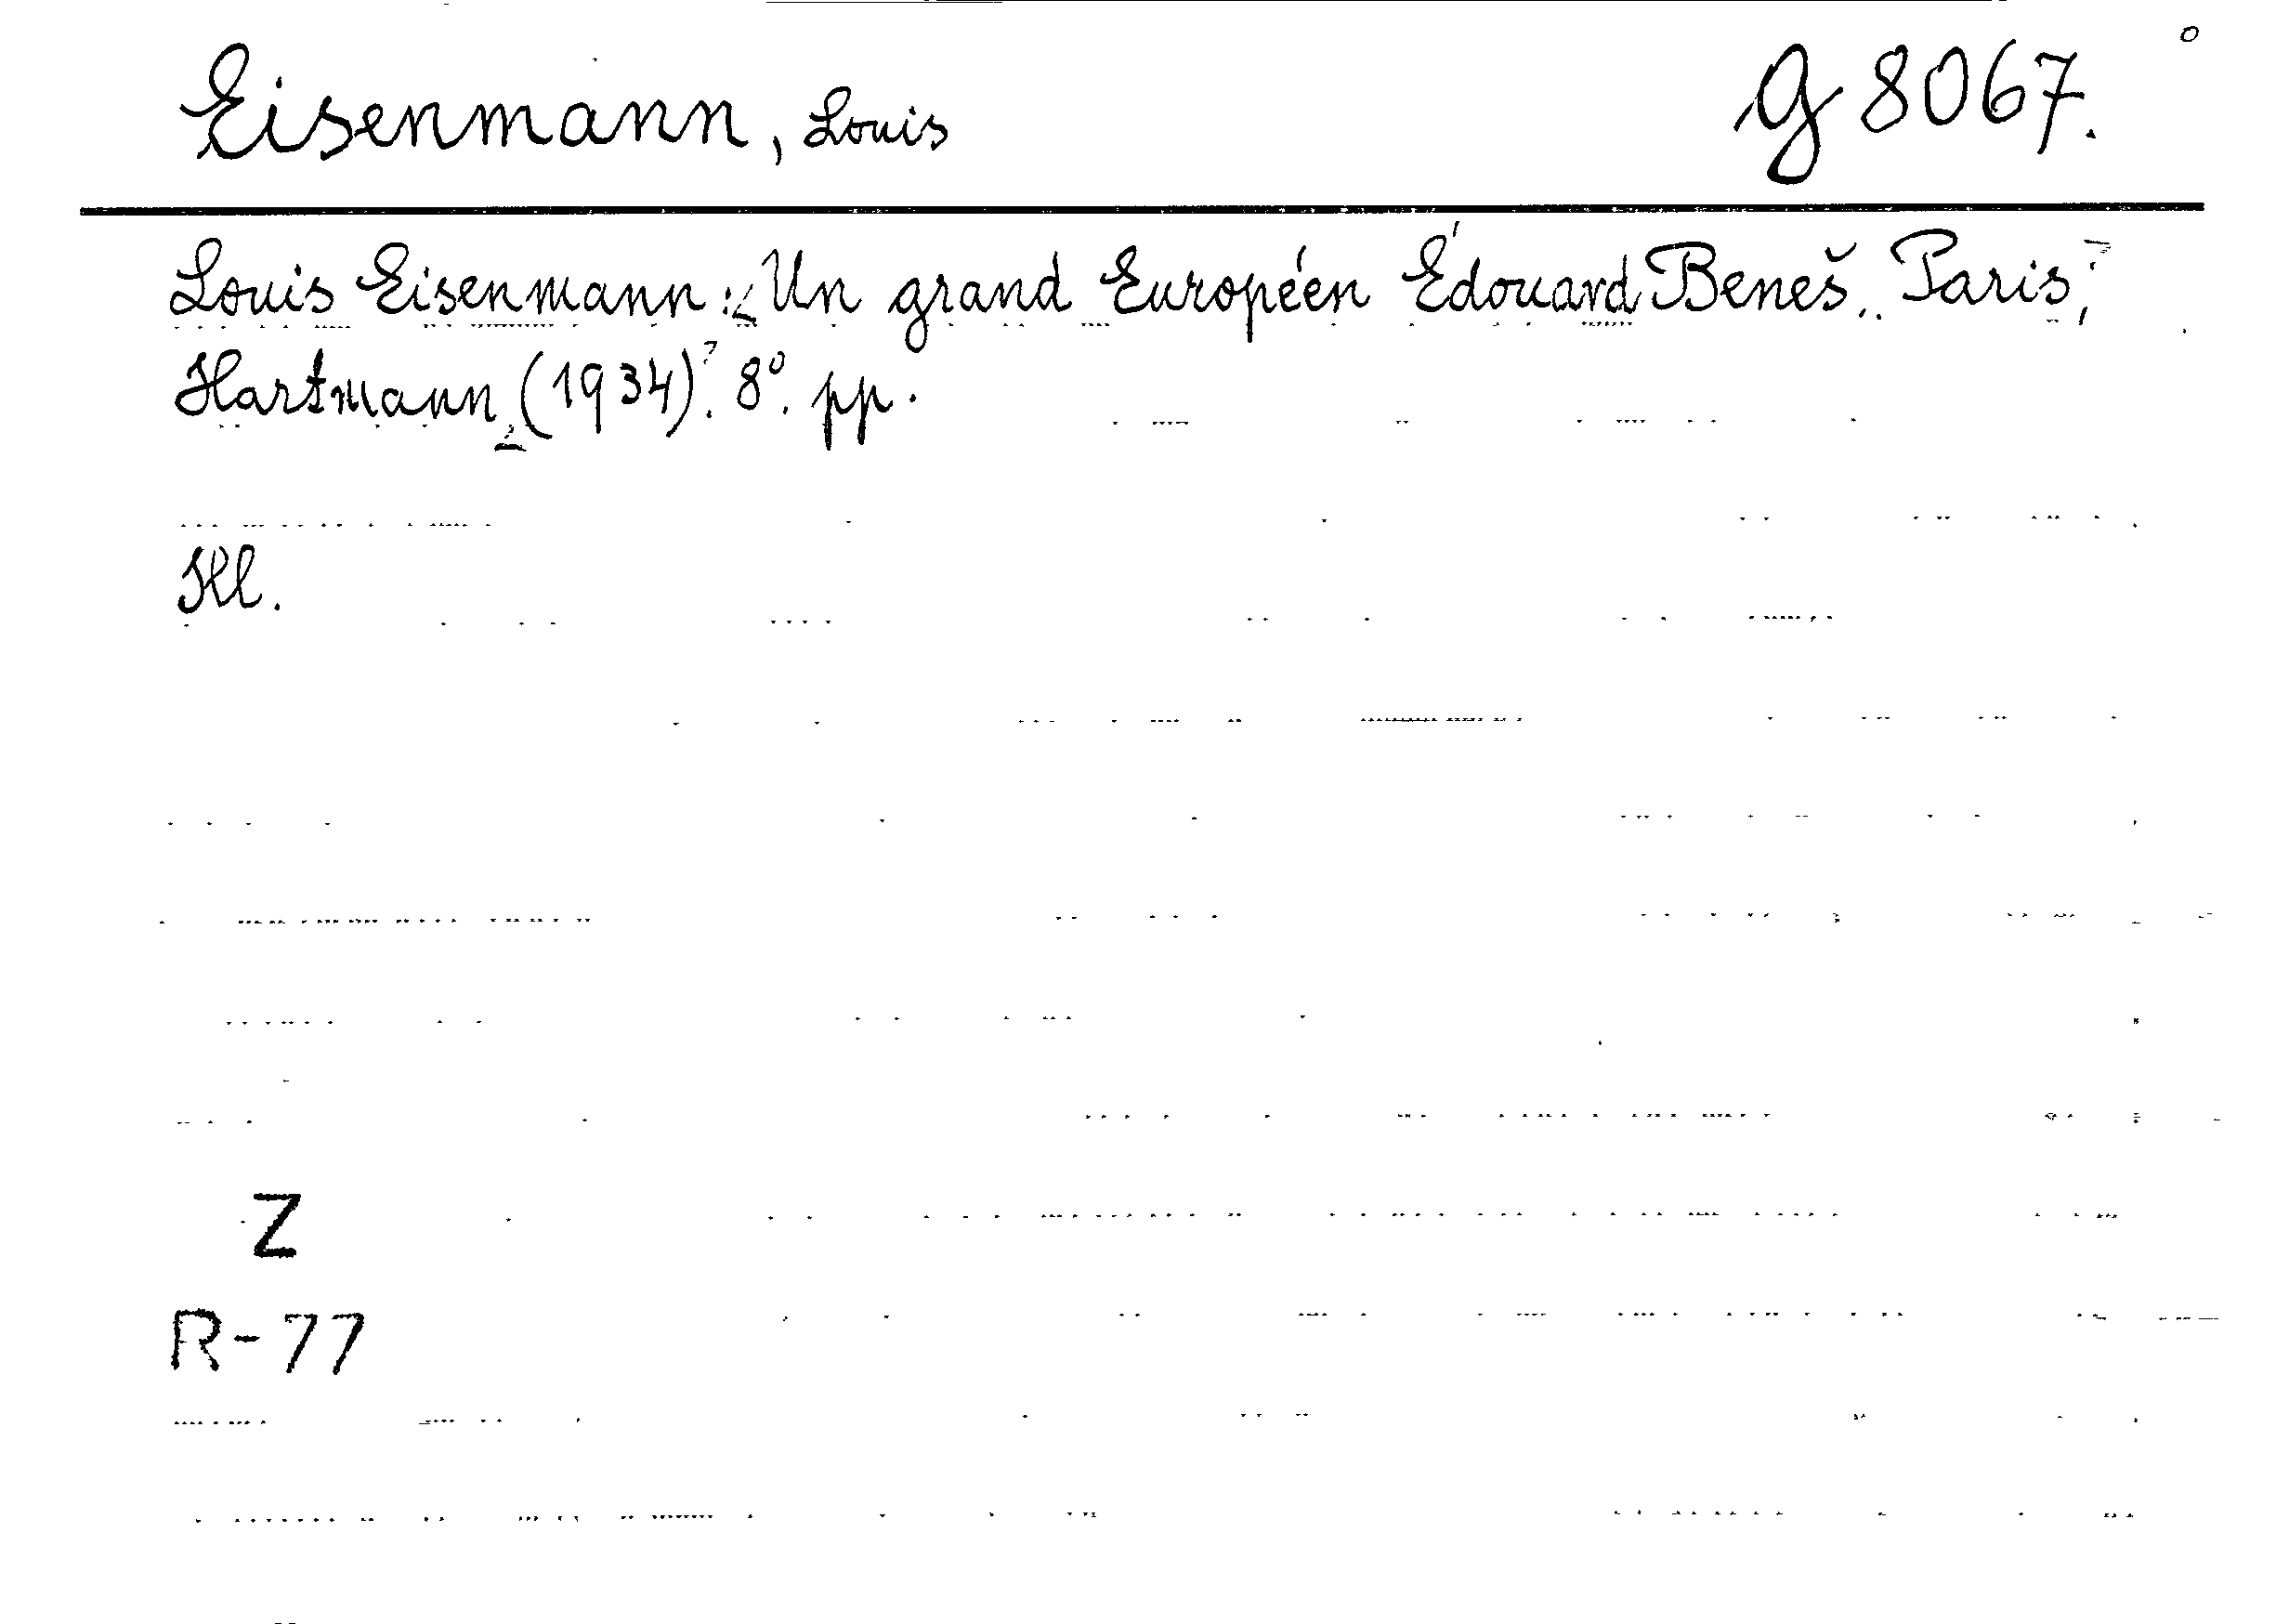 Eisenmann, Louis G 8067.
Louis Eisenmann: Un grand Européen Édouard Beneš. Paris,
Hartmann (1934). 8°. pp.
Kl.
Z
R-77